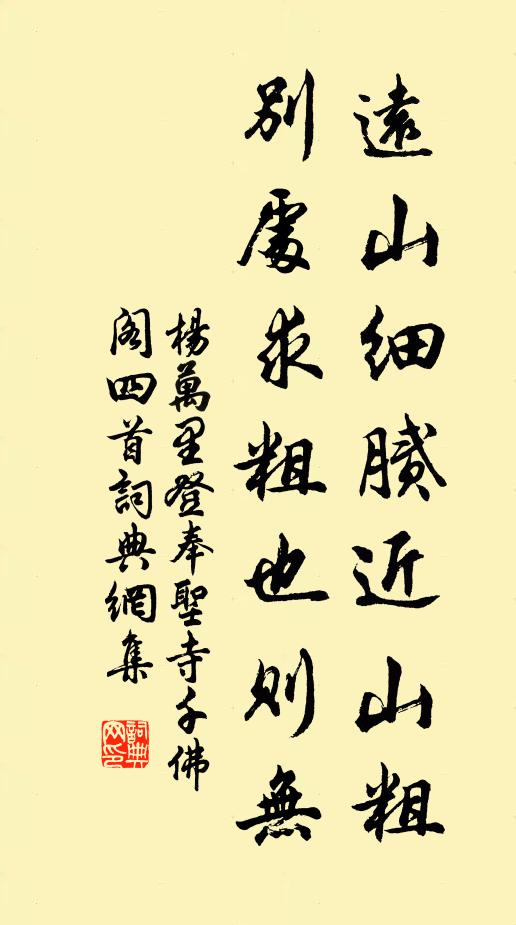 遠山細膩近山粗
別處求粗也則無
楊萬里登奉聖寺千佛
閣四首詞典網集
詞典
网印